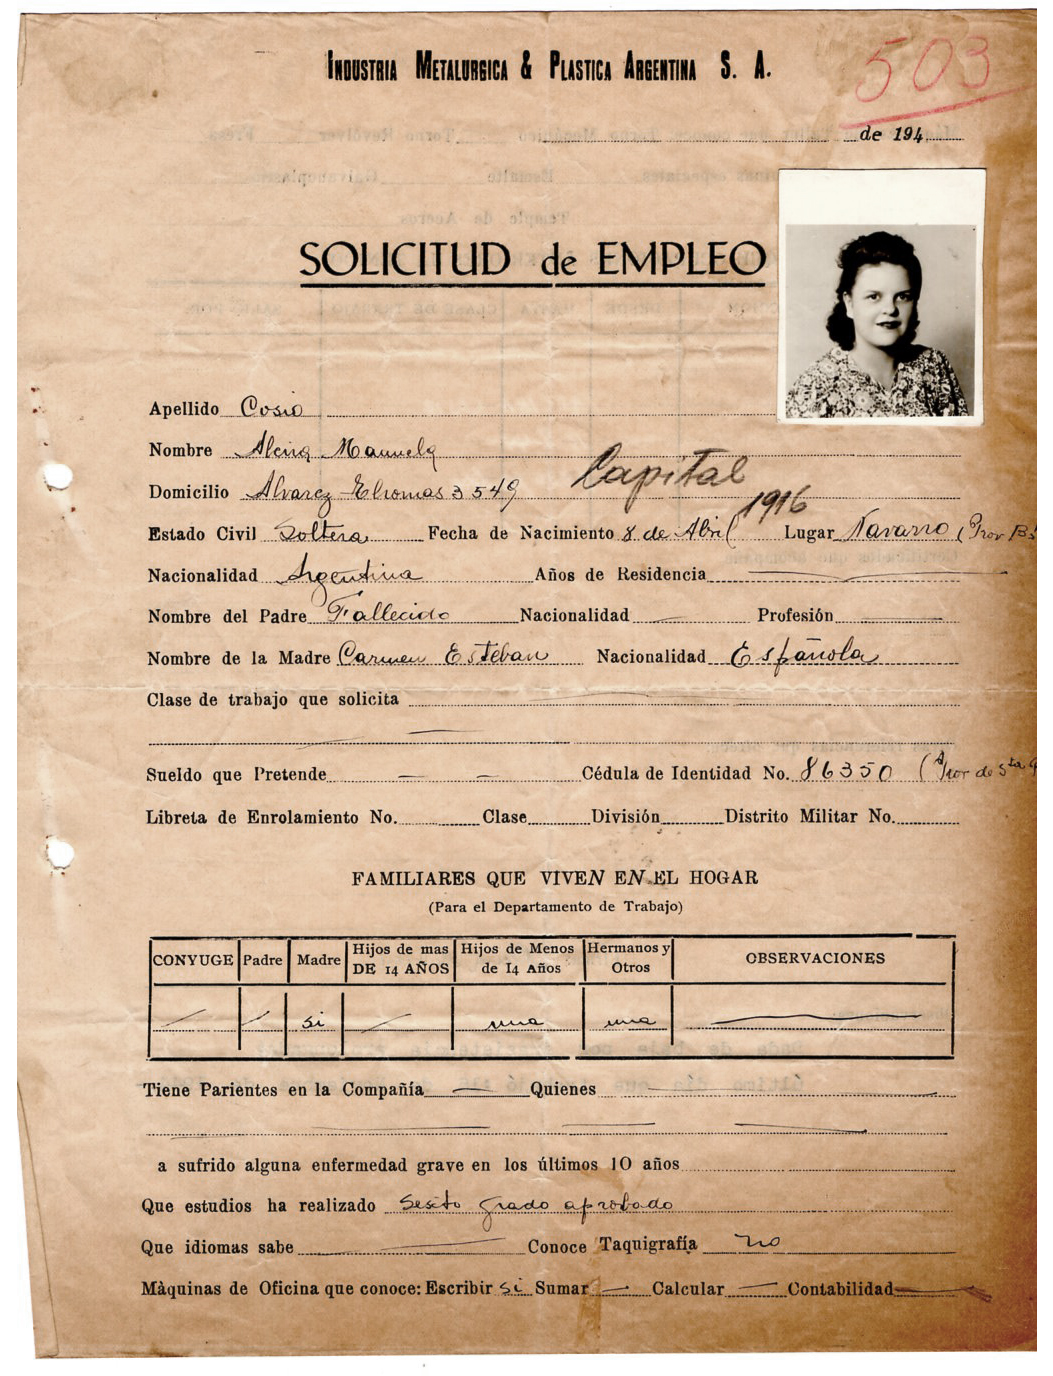 INDUSTRIA METALURGICA & PLASTICA ARGENTINA S. A.
503
de 194
SOLICITUD de EMPLEO
Apellido Cosio
Nombre Alcira Manuela
Domicilio Alvarez Thomas 3549 Capital
1916
Estado Civil Soltera Fecha de Nacimiento 8 de Abril Lugar Navarro (Prov Bs
Nacionalidad Argentina Años de Residencia
Nombre del Padre Fallecido Nacionalidad Profesión
Nombre de la Madre Carmen Esteban Nacionalidad Española
Clase de trabajo que solicita
Sueldo que Pretende Cédula de Identidad No. 86350 (Prov de Sta
Libreta de Enrolamiento No. Clase División Distrito Militar No.
FAMILIARES QUE VIVEN EN EL HOGAR
(Para el Departamento de Trabajo)
CONYUGE Padre Madre Hijos de mas DE 14 AÑOS Hijos de Menos de 14 Años Hermanos y Otros OBSERVACIONES
si una una
Tiene Parientes en la Compañía Quienes
a sufrido alguna enfermedad grave en los últimos 10 años
Que estudios ha realizado Sexto grado aprobado
Que idiomas sabe Conoce Taquigrafía no
Màquinas de Oficina que conoce: Escribir si Sumar Calcular Contabilidad